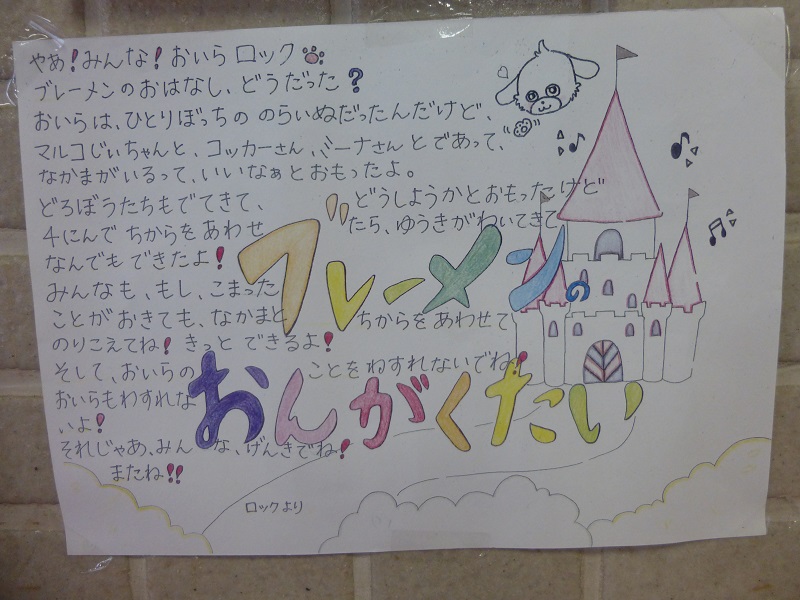 やぁ!みんな!おいらロック
ブレーメンのおはなし、どうだった?
おいらは、ひとりぼっちの のらいぬだったんだけど、
マルコじぃちゃんと、コッカーさん、ミーナさんとであって、
なかまがいるって、いいなぁとおもったよ。
どろぼうたちもでてきて、どうしようかとおもったけど
4にんで ちからをあわせたら、ゆうきがわいてきて
なんでもできたよ!
みんなも、もし、こまった
ことがおきても、なかまと ちからをあわせて
のりこえてね!きっと できるよ!
そして、おいらの ことをわすれないでね!
おいらもわすれな
いよ!
それじゃあ、みんな、げんきでね!
またね!!
ブレーメンの
おんがくたい
ロックより